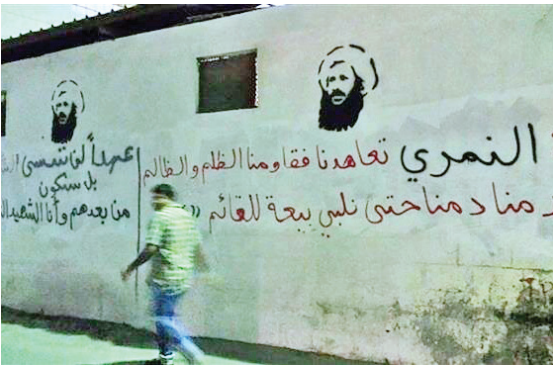 النمري تعاهدنا فقاومنا الظلم والظالم
دمنا دمنا حتى نلبي بيعة للقائم
عهداً لن ننسى
بل سنكون
من بعدهم وأنا الشهيد